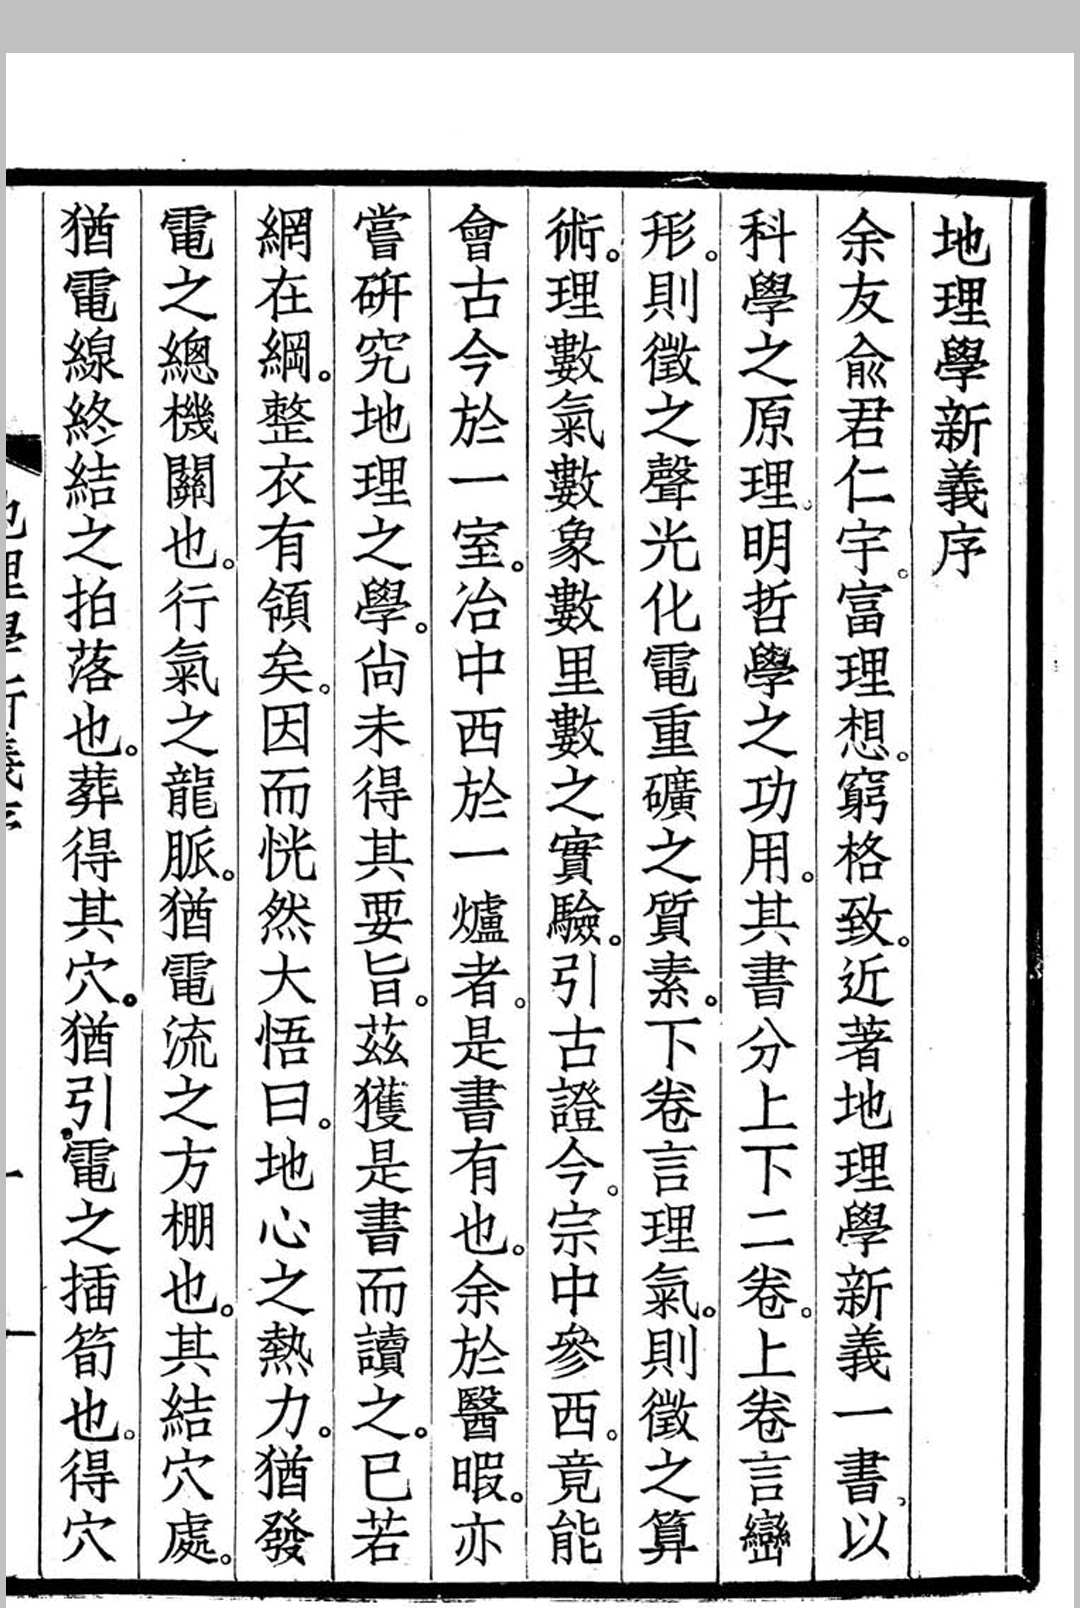 地理學新義序
余友兪君仁宇。富理想。窮格致。近著地理學新義一書。以
科學之原理。明哲學之功用。其書分上下二卷。上卷言巒
形。則徵之聲光化電重礦之質素。下卷言理氣。則徵之算
術。理數氣數象數里數之實驗。引古證今。宗中參西。竟能
會古今於一室。冶中西於一爐者。是書有也。余於醫暇。亦
嘗硏究地理之學。尙未得其要旨。茲獲是書而讀之。已若
網在綱。整衣有領矣。因而恍然大悟曰。地心之熱力。猶發
電之總機關也。行氣之龍脈。猶電流之方棚也。其結穴處。
猶電線終結之拍落也。葬得其穴。猶引電之插筍也。得穴
地理學新義序
一